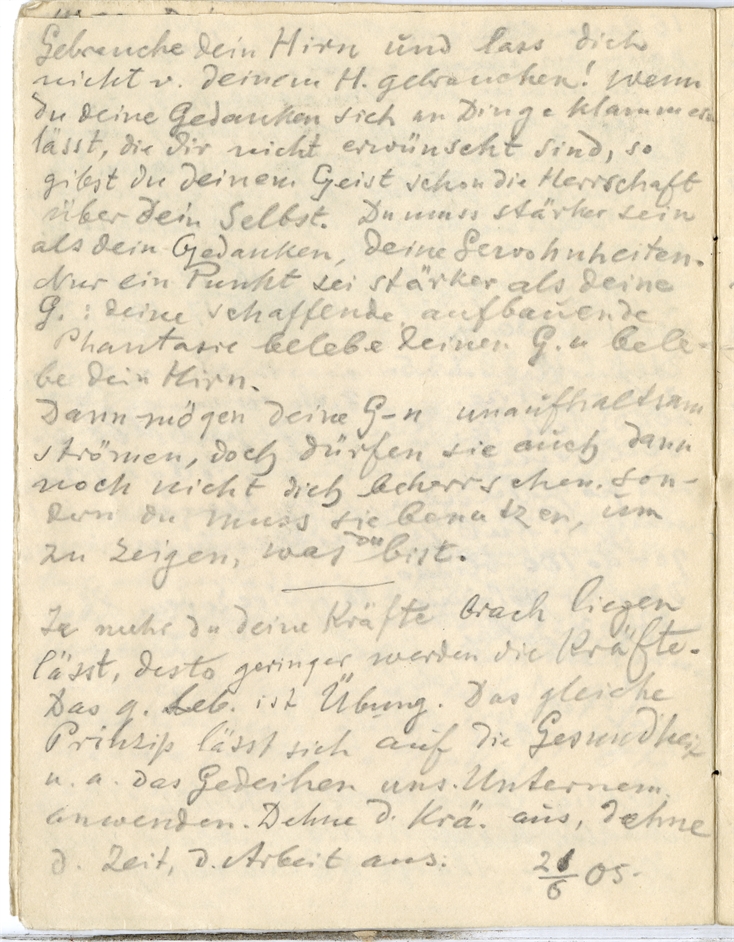 Gebrauche dein Hirn und lass dich
nicht v. deinem H. gebrauchen! Wenn
du deine Gedanken sich an Dinge klammern
lässt, die dir nicht erwünscht sind, so
gibst du deinem Geist schon die Herrschaft
über dein Selbst. Du muss stärker sein
als dein Gedanken, deine Gewohnheiten.
Nur ein Punkt sei stärker als deine
G.: deine schaffende aufbauende
Phantasie belebe deinen G. u bele-
be dein Hirn.
Dann mögen deine G-n unaufhaltsam
strömen, doch dürfen sie auch dann
noch nicht dich beherrschen. son-
dern du muss sie benutzen, um
zu zeigen, was DU bist.
Je mehr du deine Kräfte brach liegen
lässt, desto geringer werden die Kräfte.
Das g. Leb. ist Übung. Das gleiche
Prinzip lässt sich auf die Gesundheit
u. a. das Gedeihen uns. Unternem.
anwenden. Dehne d. Krä. aus, dehne
d. Zeit, d. Arbeit aus.
21/6 05.